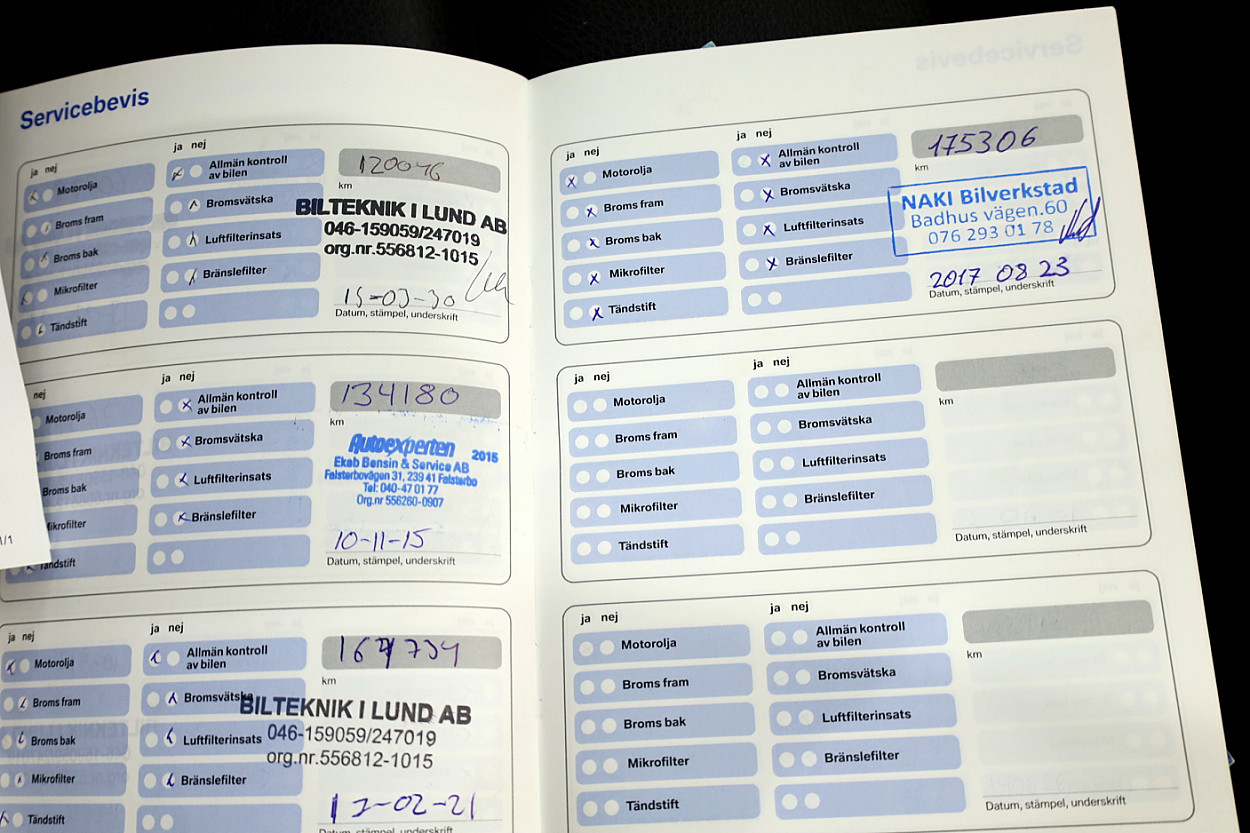 Servicebevis
ja nej
Motorolja
Broms fram
Broms bak
Mikrofilter
Tändstift
ja nej
Allmän kontroll
av bilen
Bromsvätska
Luftfilterinsats
Bränslefilter
120046
km
BILTEKNIK I LUND AB
046-159059/247019
org.nr.556812-1015
15-03-30
Datum, stämpel, underskrift
nej
Motorolja
Broms fram
Broms bak
Mikrofilter
Tändstift
ja nej
Allmän kontroll
av bilen
Bromsvätska
Luftfilterinsats
Bränslefilter
134180
km
Autoexperten 2015
Ekeb Bensin & Service AB
Falsterbovägen 31, 239 41 Falsterbo
Tel: 040-47 01 77
Org.nr 556260-0907
10-11-15
Datum, stämpel, underskrift
1/1
ja nej
Motorolja
Broms fram
Broms bak
Mikrofilter
Tändstift
ja nej
Allmän kontroll
av bilen
Bromsvätska
Luftfilterinsats
Bränslefilter
km
BILTEKNIK I LUND AB
046-159059/247019
org.nr.556812-1015
17-02-21
Datum, stämpel, underskrift
ja nej
Motorolja
Broms fram
Broms bak
Mikrofilter
Tändstift
ja nej
Allmän kontroll
av bilen
Bromsvätska
Luftfilterinsats
Bränslefilter
175306
km
NAKI Bilverkstad
Badhus vägen.60
076 293 01 78
2017 08 23
Datum, stämpel, underskrift
ja nej
Motorolja
Broms fram
Broms bak
Mikrofilter
Tändstift
ja nej
Allmän kontroll
av bilen
Bromsvätska
Luftfilterinsats
Bränslefilter
km
Datum, stämpel, underskrift
ja nej
Motorolja
Broms fram
Broms bak
Mikrofilter
Tändstift
ja nej
Allmän kontroll
av bilen
Bromsvätska
Luftfilterinsats
Bränslefilter
km
Datum, stämpel, underskrift